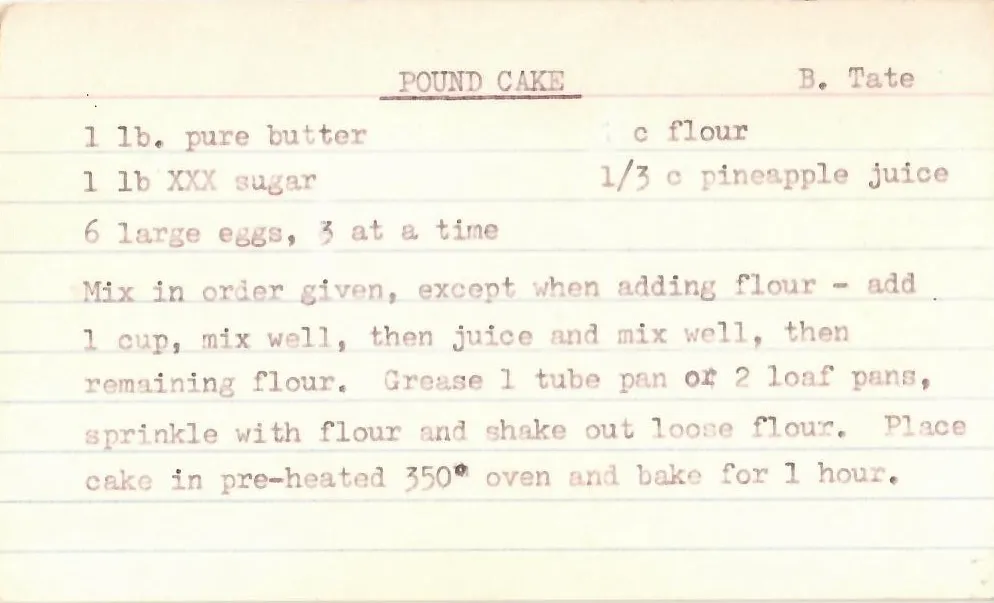 POUND CAKE B. Tate
1 lb. pure butter c flour
1 lb XXX sugar 1/3 c pineapple juice
6 large eggs, 3 at a time
Mix in order given, except when adding flour - add
1 cup, mix well, then juice and mix well, then
remaining flour. Grease 1 tube pan or 2 loaf pans,
sprinkle with flour and shake out loose flour. Place
cake in pre-heated 350° oven and bake for 1 hour.